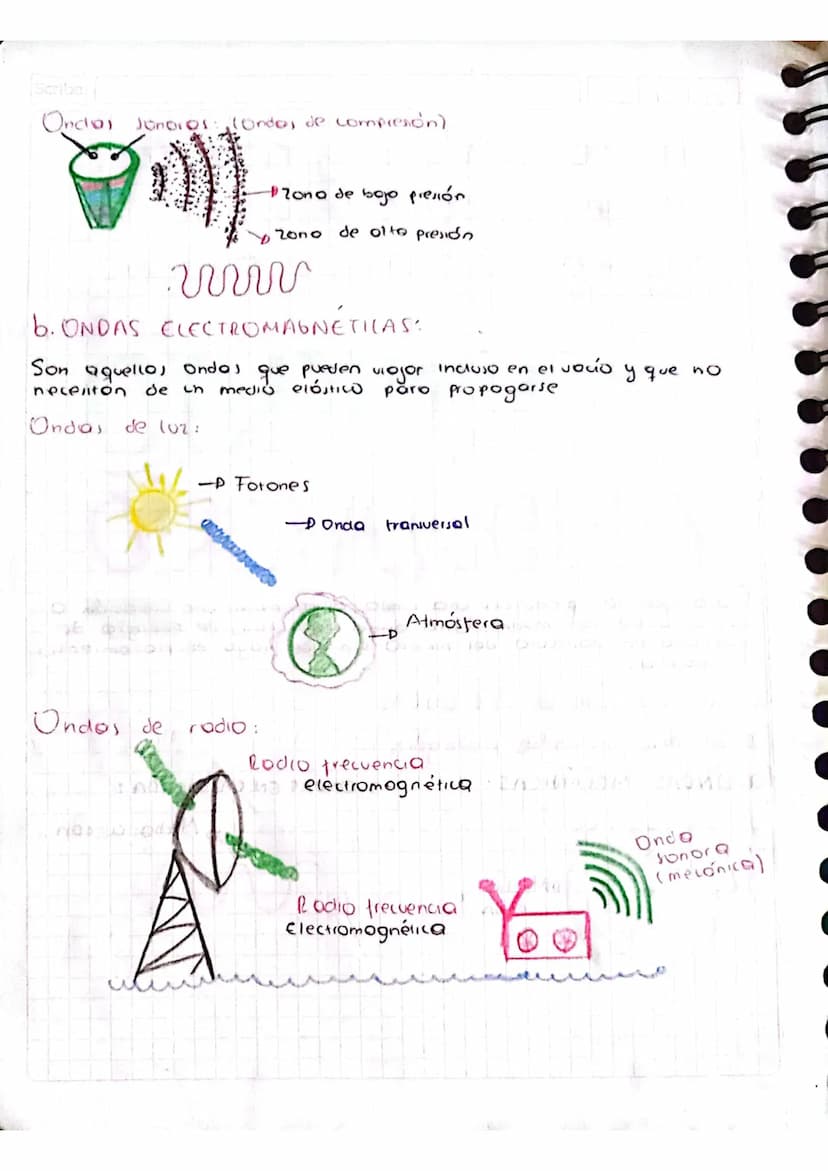 Scribe
Ondas sonoras: (ondas de compresión)
Zona de bajo presión
Zona de alta presión
b. ONDAS ELECTROMAGNÉTICAS:
Son aquellas ondas que pueden viajar incluso en el vacío y que no
necesitan de un medio elástico para propagarse
Ondas de luz:
Fotones
Onda tranversal
Atmósfera
Ondas de radio:
Radio frecuencia
electromagnética
Onda
sonora
(mecánica)
Radio frecuencia
Electromagnética